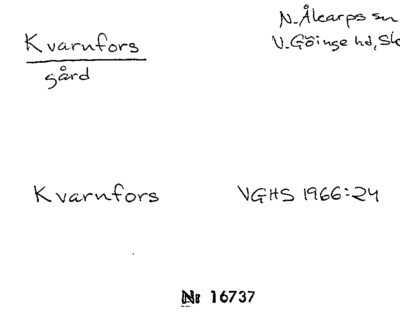 Kvarnfors
gård
N. Åkarps sn
V. Göinge hd, Sk
Kvarnfors VGHS 1966:24
Nr 16737